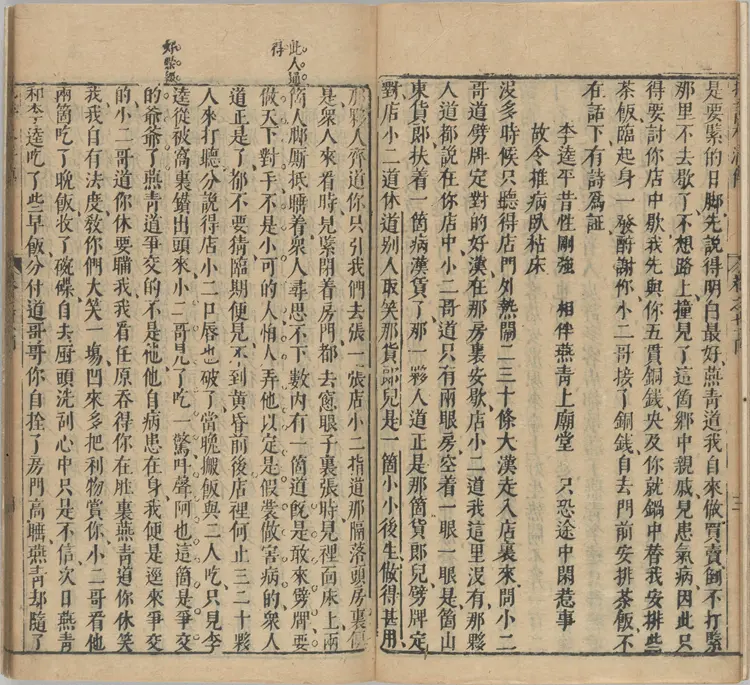 是要緊的日脚先說得明白最好燕青道我自來做買賣倒不打緊
那里不去歇了不想路上撞見了這箇鄉中親戚見患氣病因此只
得要討你店中歇我先與你五貫銅錢央及你就鍋中替我安排些
茶飯臨起身一發酧謝你小二哥接了銅錢自去門前安排茶飯不
在話下有詩爲証
李逵平昔性剛強 相伴燕青上廟堂 只恐途中閑惹事
故令推病臥枯床
沒多時候只聽得店門外熱鬧二三十條大漢走入店裏來問小二
哥道劈牌定對的好漢在那房裏安歇店小二道我這里沒有那夥
人道都說在你店中小二哥道只有兩眼房空着一眼一眼是箇山
東貨郎扶着一箇病漢賃了那一夥人道正是那箇貨郎兒劈牌定
對店小二道休道別人取笑那貨郎兒是一箇小小後生做得甚用
此人通
得
那夥人齊道你只引我們去張一張店小二指道那隔落頭房裏便
是衆人來看時見緊閉着房門都去窻眼子裏張時見裡面床上兩
箇人脚厮抵睡着衆人尋思不下數内有一箇道旣是敢來劈牌要
做天下對手不是小可的人怕人弄他以定是假粧做害病的衆人
道正是了都不要猜臨期便見不到黄昏前後店裡何止三二十夥
人來打聽分說得店小二口唇也破了當晚搬飯與二人吃只見李
好點綴
逵從被窩裏鑽出頭來小二哥見了吃一驚吁聲阿也這箇是爭交
的爺爺了燕青道爭交的不是他他自病患在身我便是逕來爭交
的小二哥道你休要瞞我我看任原吞得你在肚裏燕青道你休笑
我我自有法度敎你們大笑一塲囬來多把利物賞你小二哥看他
兩箇吃了晚飯收了碗碟自去厨頭洗刮心中只是不信次日燕青
和李逵吃了些早飯分付道哥哥你自拴了房門高睡燕青却隨了